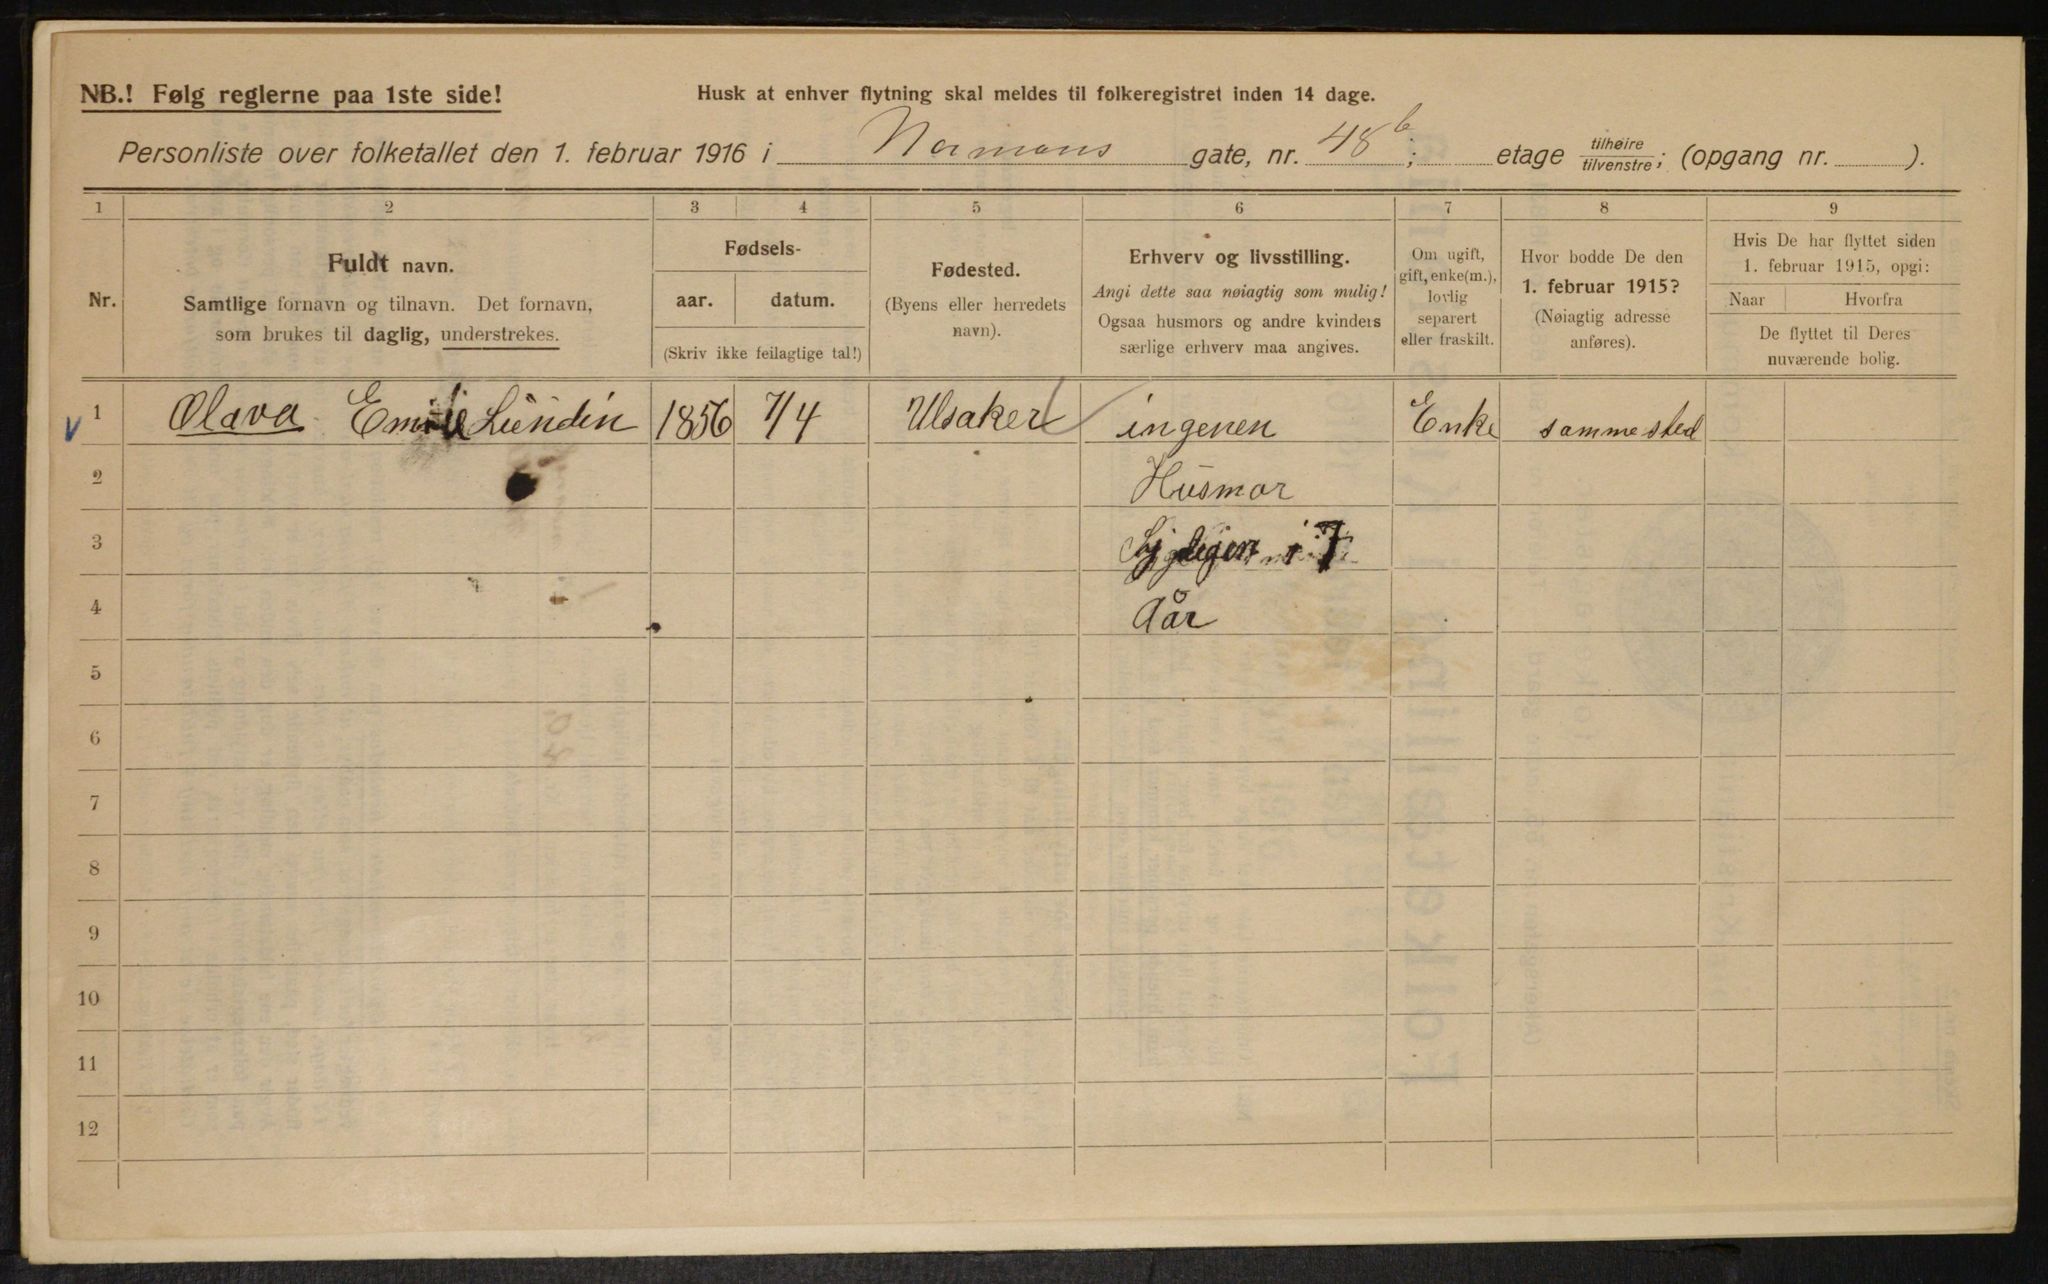 NB.! Følg reglerne paa 1ste side!
Husk at enhver flytning skal meldes til folkeregistret inden 14 dage.
Personliste over folketallet den 1. februar 1916 i Normans gate, nr. 48 b; etage tilhøire tilvenstre; (opgang nr. ).
1 2 3 4 5 6 7 8 9
Nr.
Fuldt navn.
Samtlige fornavn og tilnavn. Det fornavn,
som brukes til daglig, understrekes.
Fødsels-
aar. datum.
(Skriv ikke feilagtige tal!)
Fødested.
(Byens eller herredets
navn).
Erhverv og livsstilling.
Angi dette saa nøiagtig som mulig!
Ogsaa husmors og andre kvinders
særlige erhverv maa angives.
Om ugift,
gift, enke(m.),
lovlig
separert
eller fraskilt.
Hvor bodde De den
1. februar 1915?
(Nøiagtig adresse
anføres).
Hvis De har flyttet siden
1. februar 1915, opgi:
Naar Hvorfra
De flyttet til Deres
nuværende bolig.
1 Olava Emilie Lundin 1856 7/4 Ulsaker ingenen Enke sammested
2 Husmor
3 i 7
4 Aar
5
6
7
8
9
10
11
12